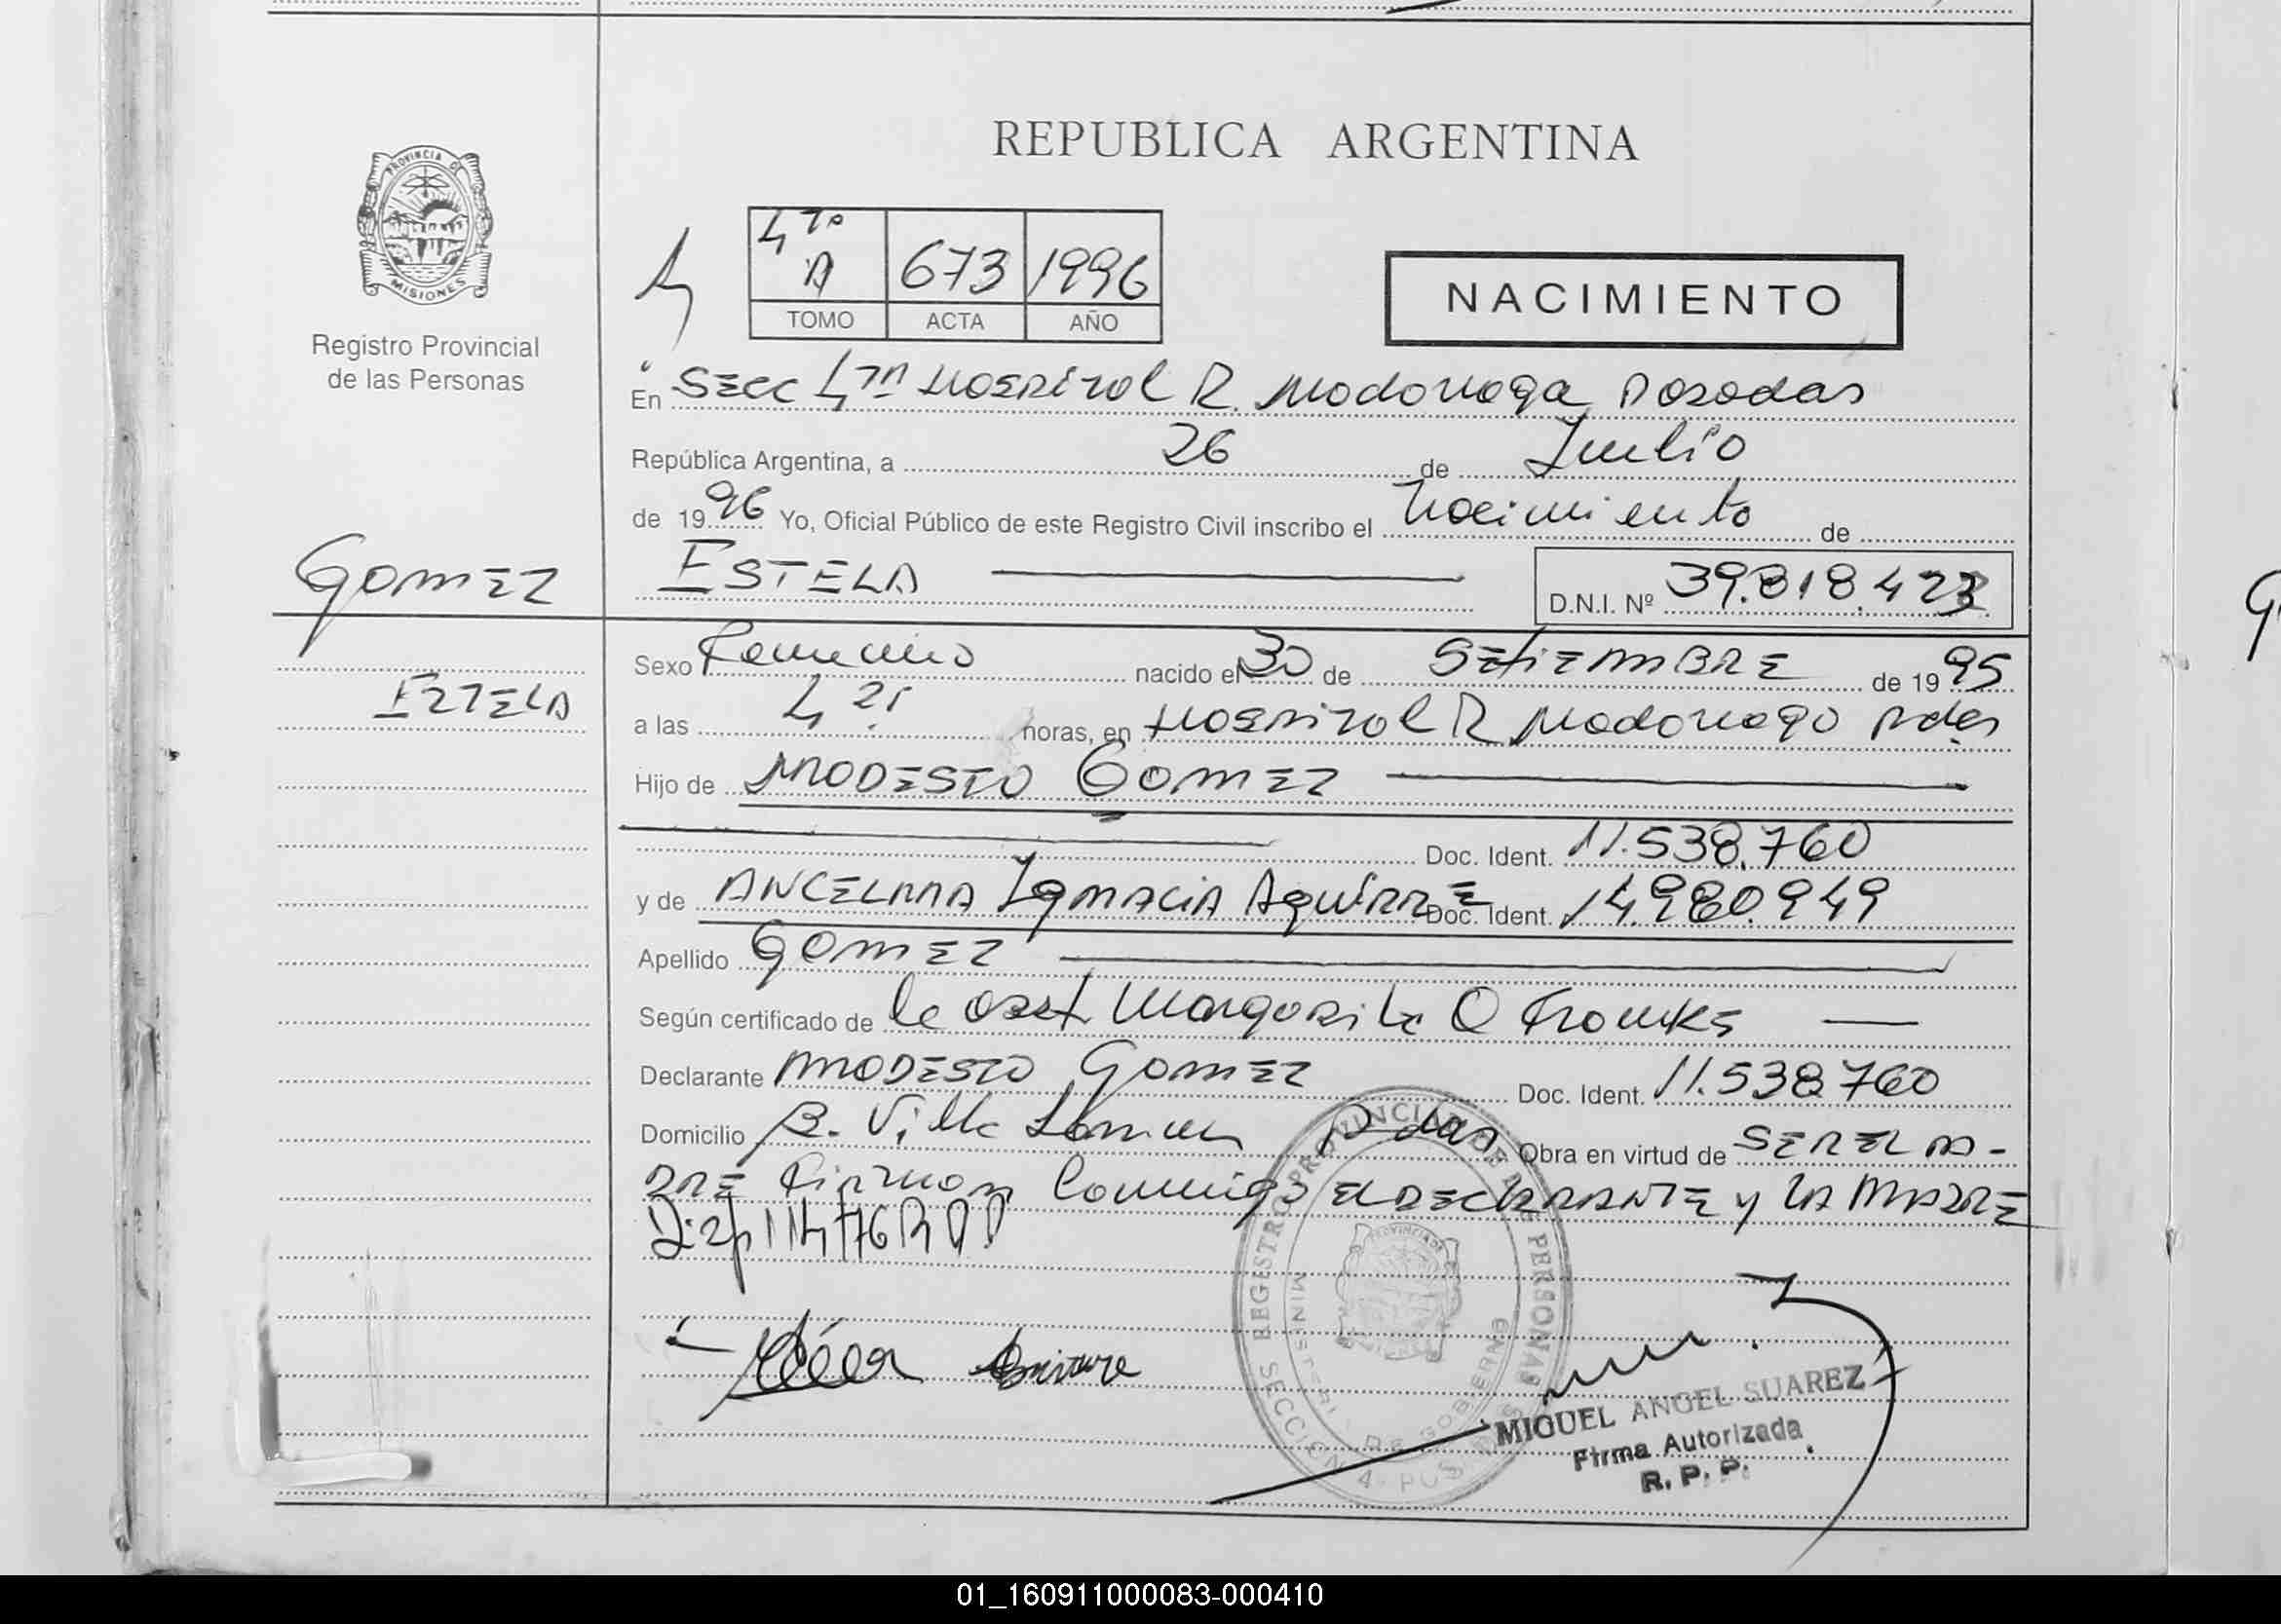 REPUBLICA ARGENTINA
PROVINCIA DE
MISIONES
Registro Provincial
de las Personas
4
4ta A 673 1996
TOMO ACTA AÑO
NACIMIENTO
En Secc 4ta Hospital R. Madariaga Posadas
República Argentina, a 26 de Julio
de 1996 Yo, Oficial Público de este Registro Civil inscribo el Nacimiento de
GOMEZ
ESTELA
ESTELA D.N.I. Nº 39.818.423
Sexo Femenino nacido el 30 de SETIEMBRE de 1995
a las 4 horas, en Hospital R Madariaga Pdas
Hijo de MODESTO GOMEZ
Doc. Ident. 11.538.760
y de Ignacia Aguirre Doc. Ident. 14.980.949
Apellido GOMEZ
Según certificado de la Obst Margarita
Declarante MODESTO GOMEZ Doc. Ident. 11.538760
Domicilio B. Villa Pdas Obra en virtud de SER EL PA-
DRE Firman Conmigo EL DECLARANTE y LA MADRE
REGISTRO PROVINCIAL DE LAS PERSONAS
SECCION 4 POSADAS
MINISTERIO DE GOBIERNO
PROVINCIA DE
MIGUEL ANGEL SUAREZ
Firma Autorizada
R. P. P.
01_160911000083-000410